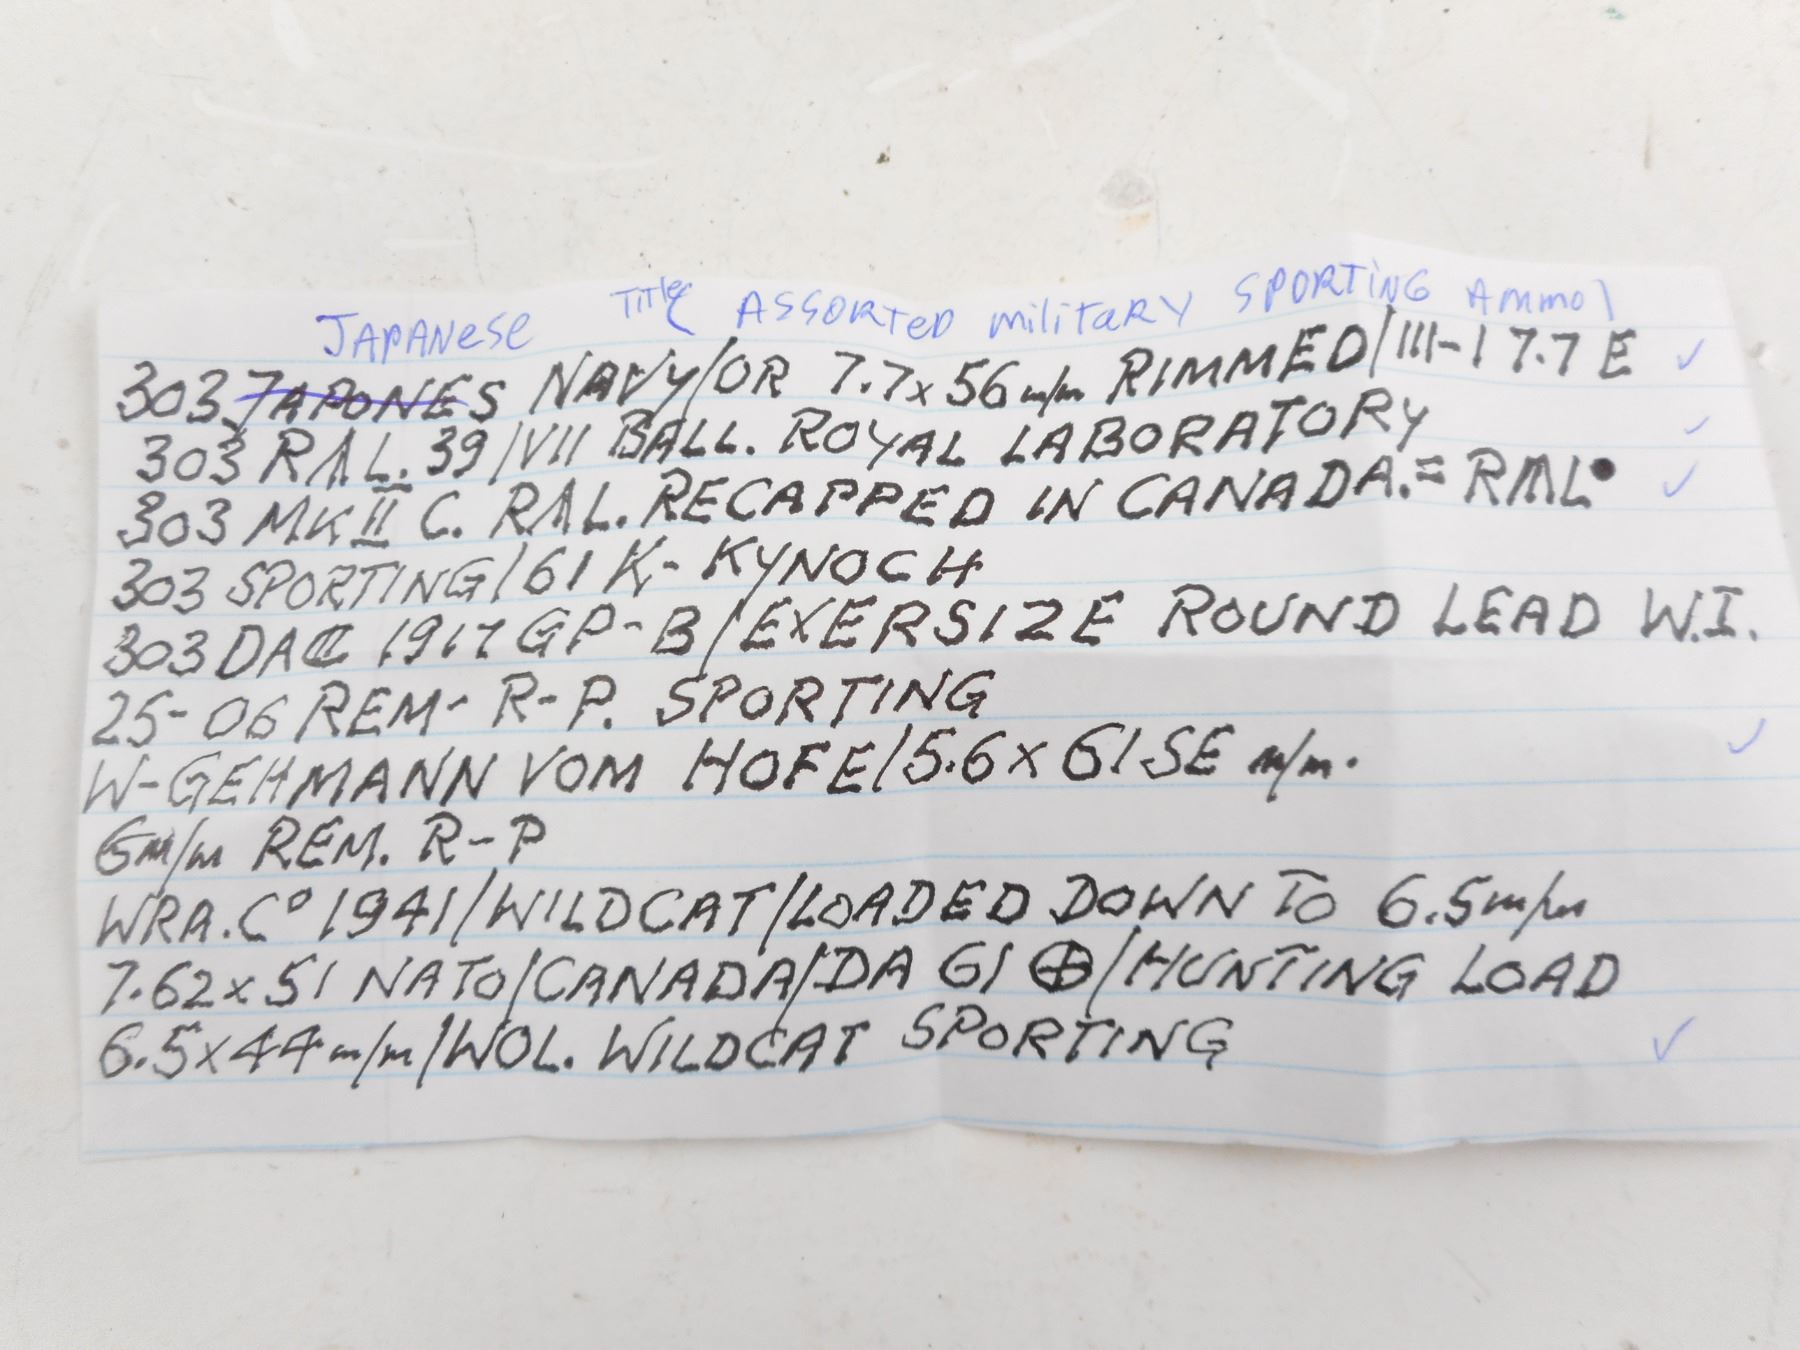 Title ASSORTED military SPORTING Ammo
JAPANese
303 JAPONES NAVY/OR 7.7x56 m/m RIMMED/III-1 7.7 E ✓
303 RΛL. 39/VII BALL. ROYAL LABORATORY ✓
303 MK II C. RΛL. RECAPPED IN CANADA.= RΛL● ✓
303 SPORTING/61 K- KYNOCH
303 DAC 1917 GP-B/EXERSIZE ROUND LEAD W.I.
25-06 REM- R-P. SPORTING
W-GEHMANN VOM HOFE/5.6x61 SE m/m. ✓
6m/m REM. R-P
WRA.Cº 1941/WILDCAT/LOADED DOWN TO 6.5m/m
7.62x51 NATO/CANADA/DA 61 ⊕/HUNTING LOAD
6.5x44 m/m/WOL. WILDCAT SPORTING ✓